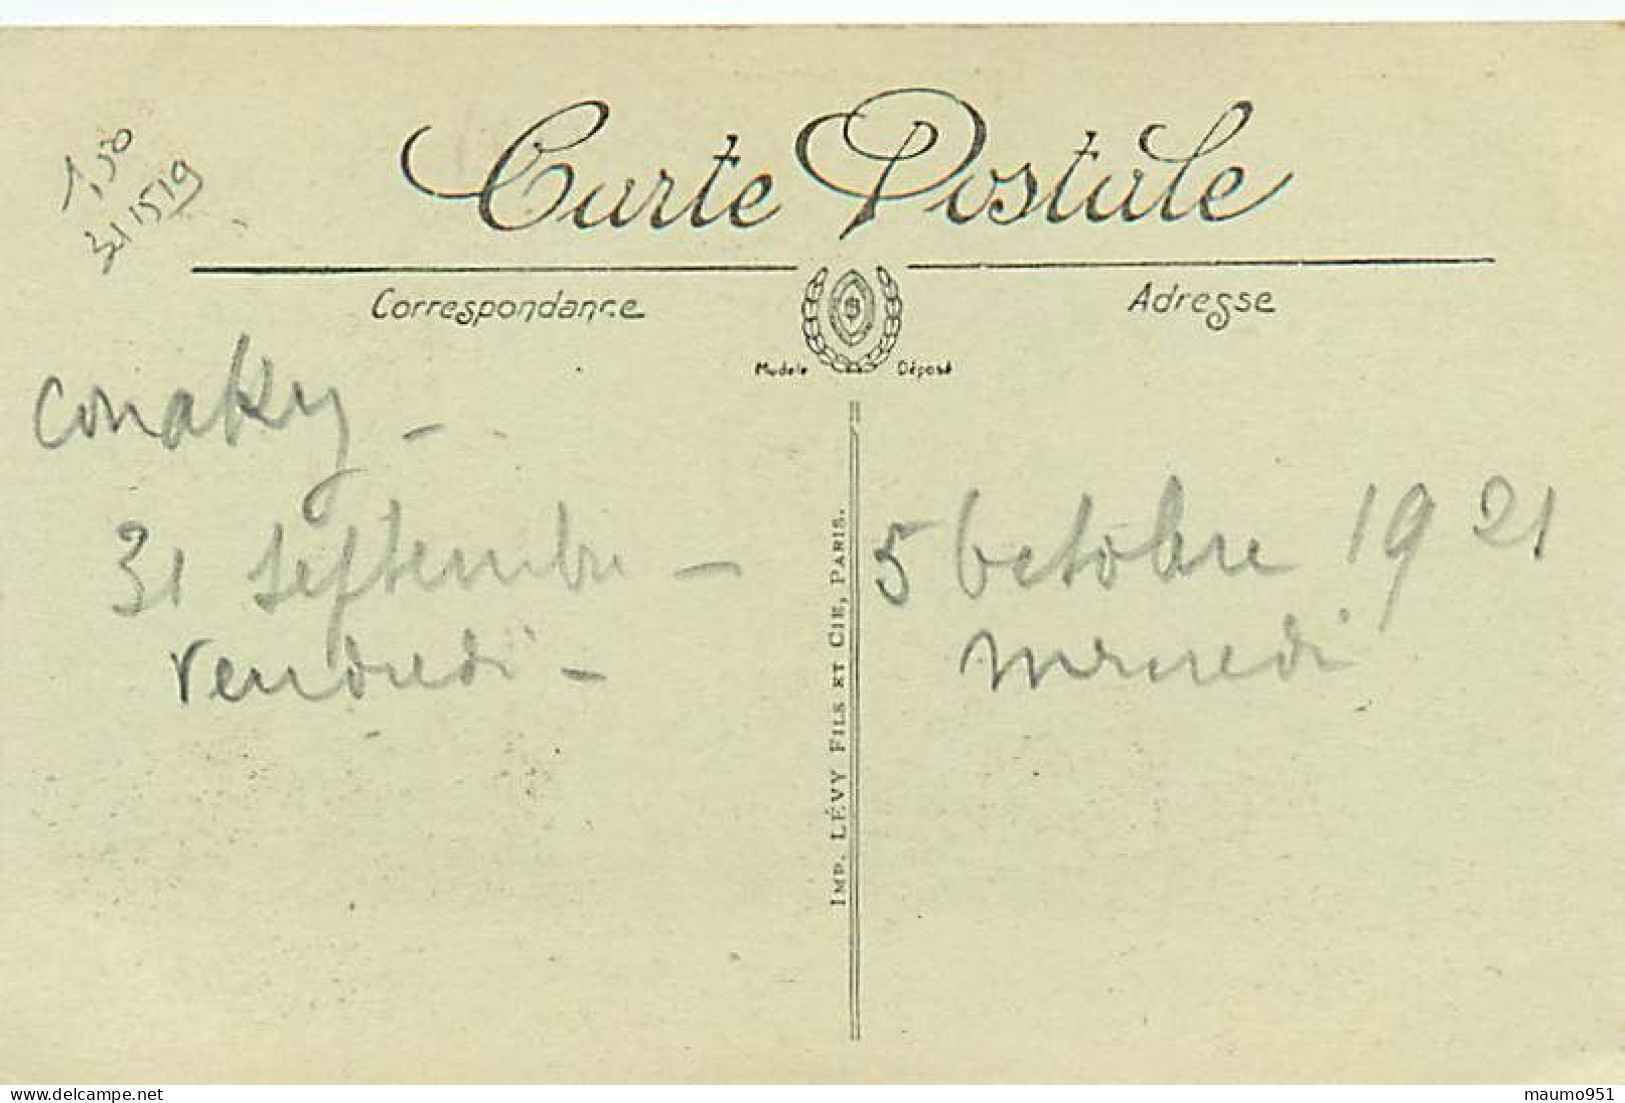 1,50
311519
Carte Postale
Correspondance
Adresse
Modèle Déposé
Conakry -
31 septembre - 5 Octobre 1921
Vendredi - mercredi
IMP. LÉVY FILS ET CIE, PARIS.
delcampe.net
maumo951